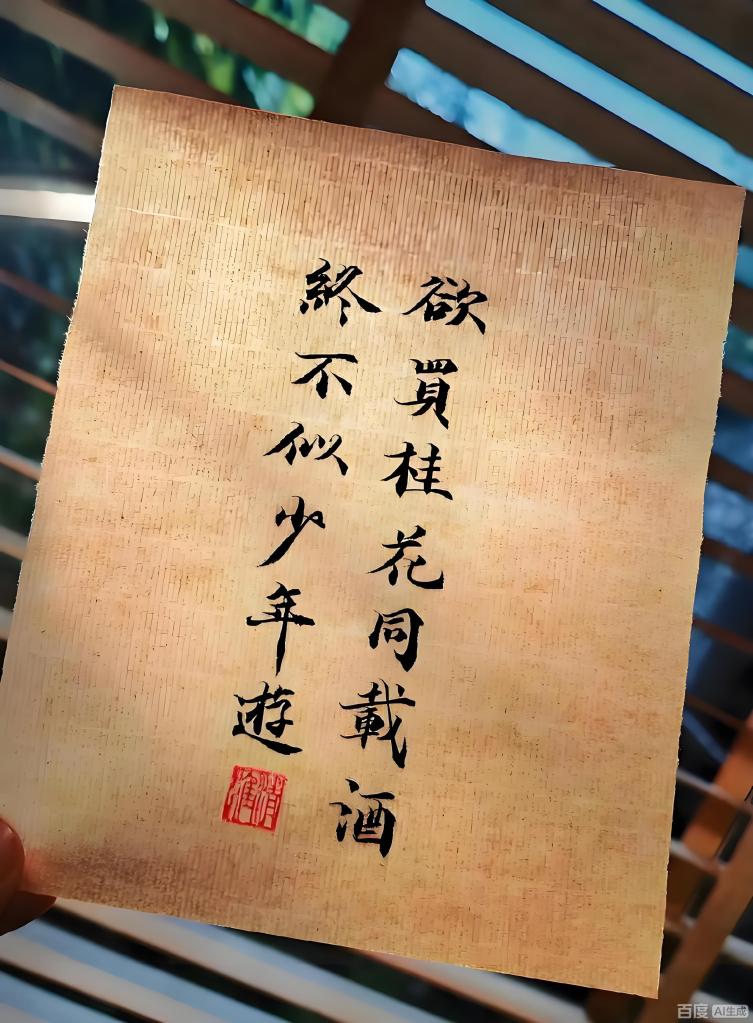 欲買桂花同載酒
終不似少年遊
百度 AI生成